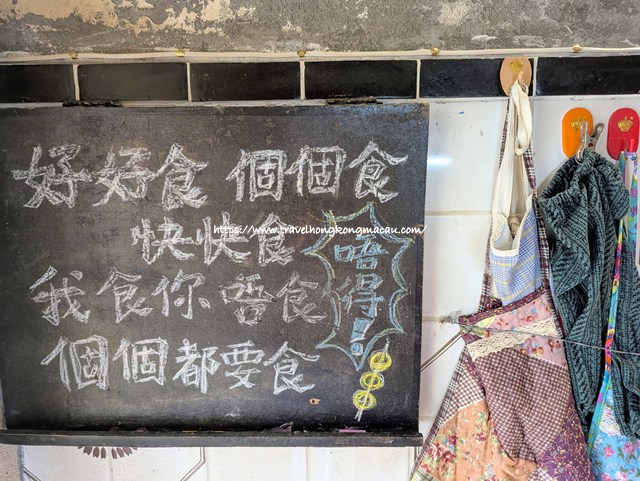 好好食 個個食
快快食
我食你唔食
個個都要食
唔得!
https://www.travelhongkongmacau.com/